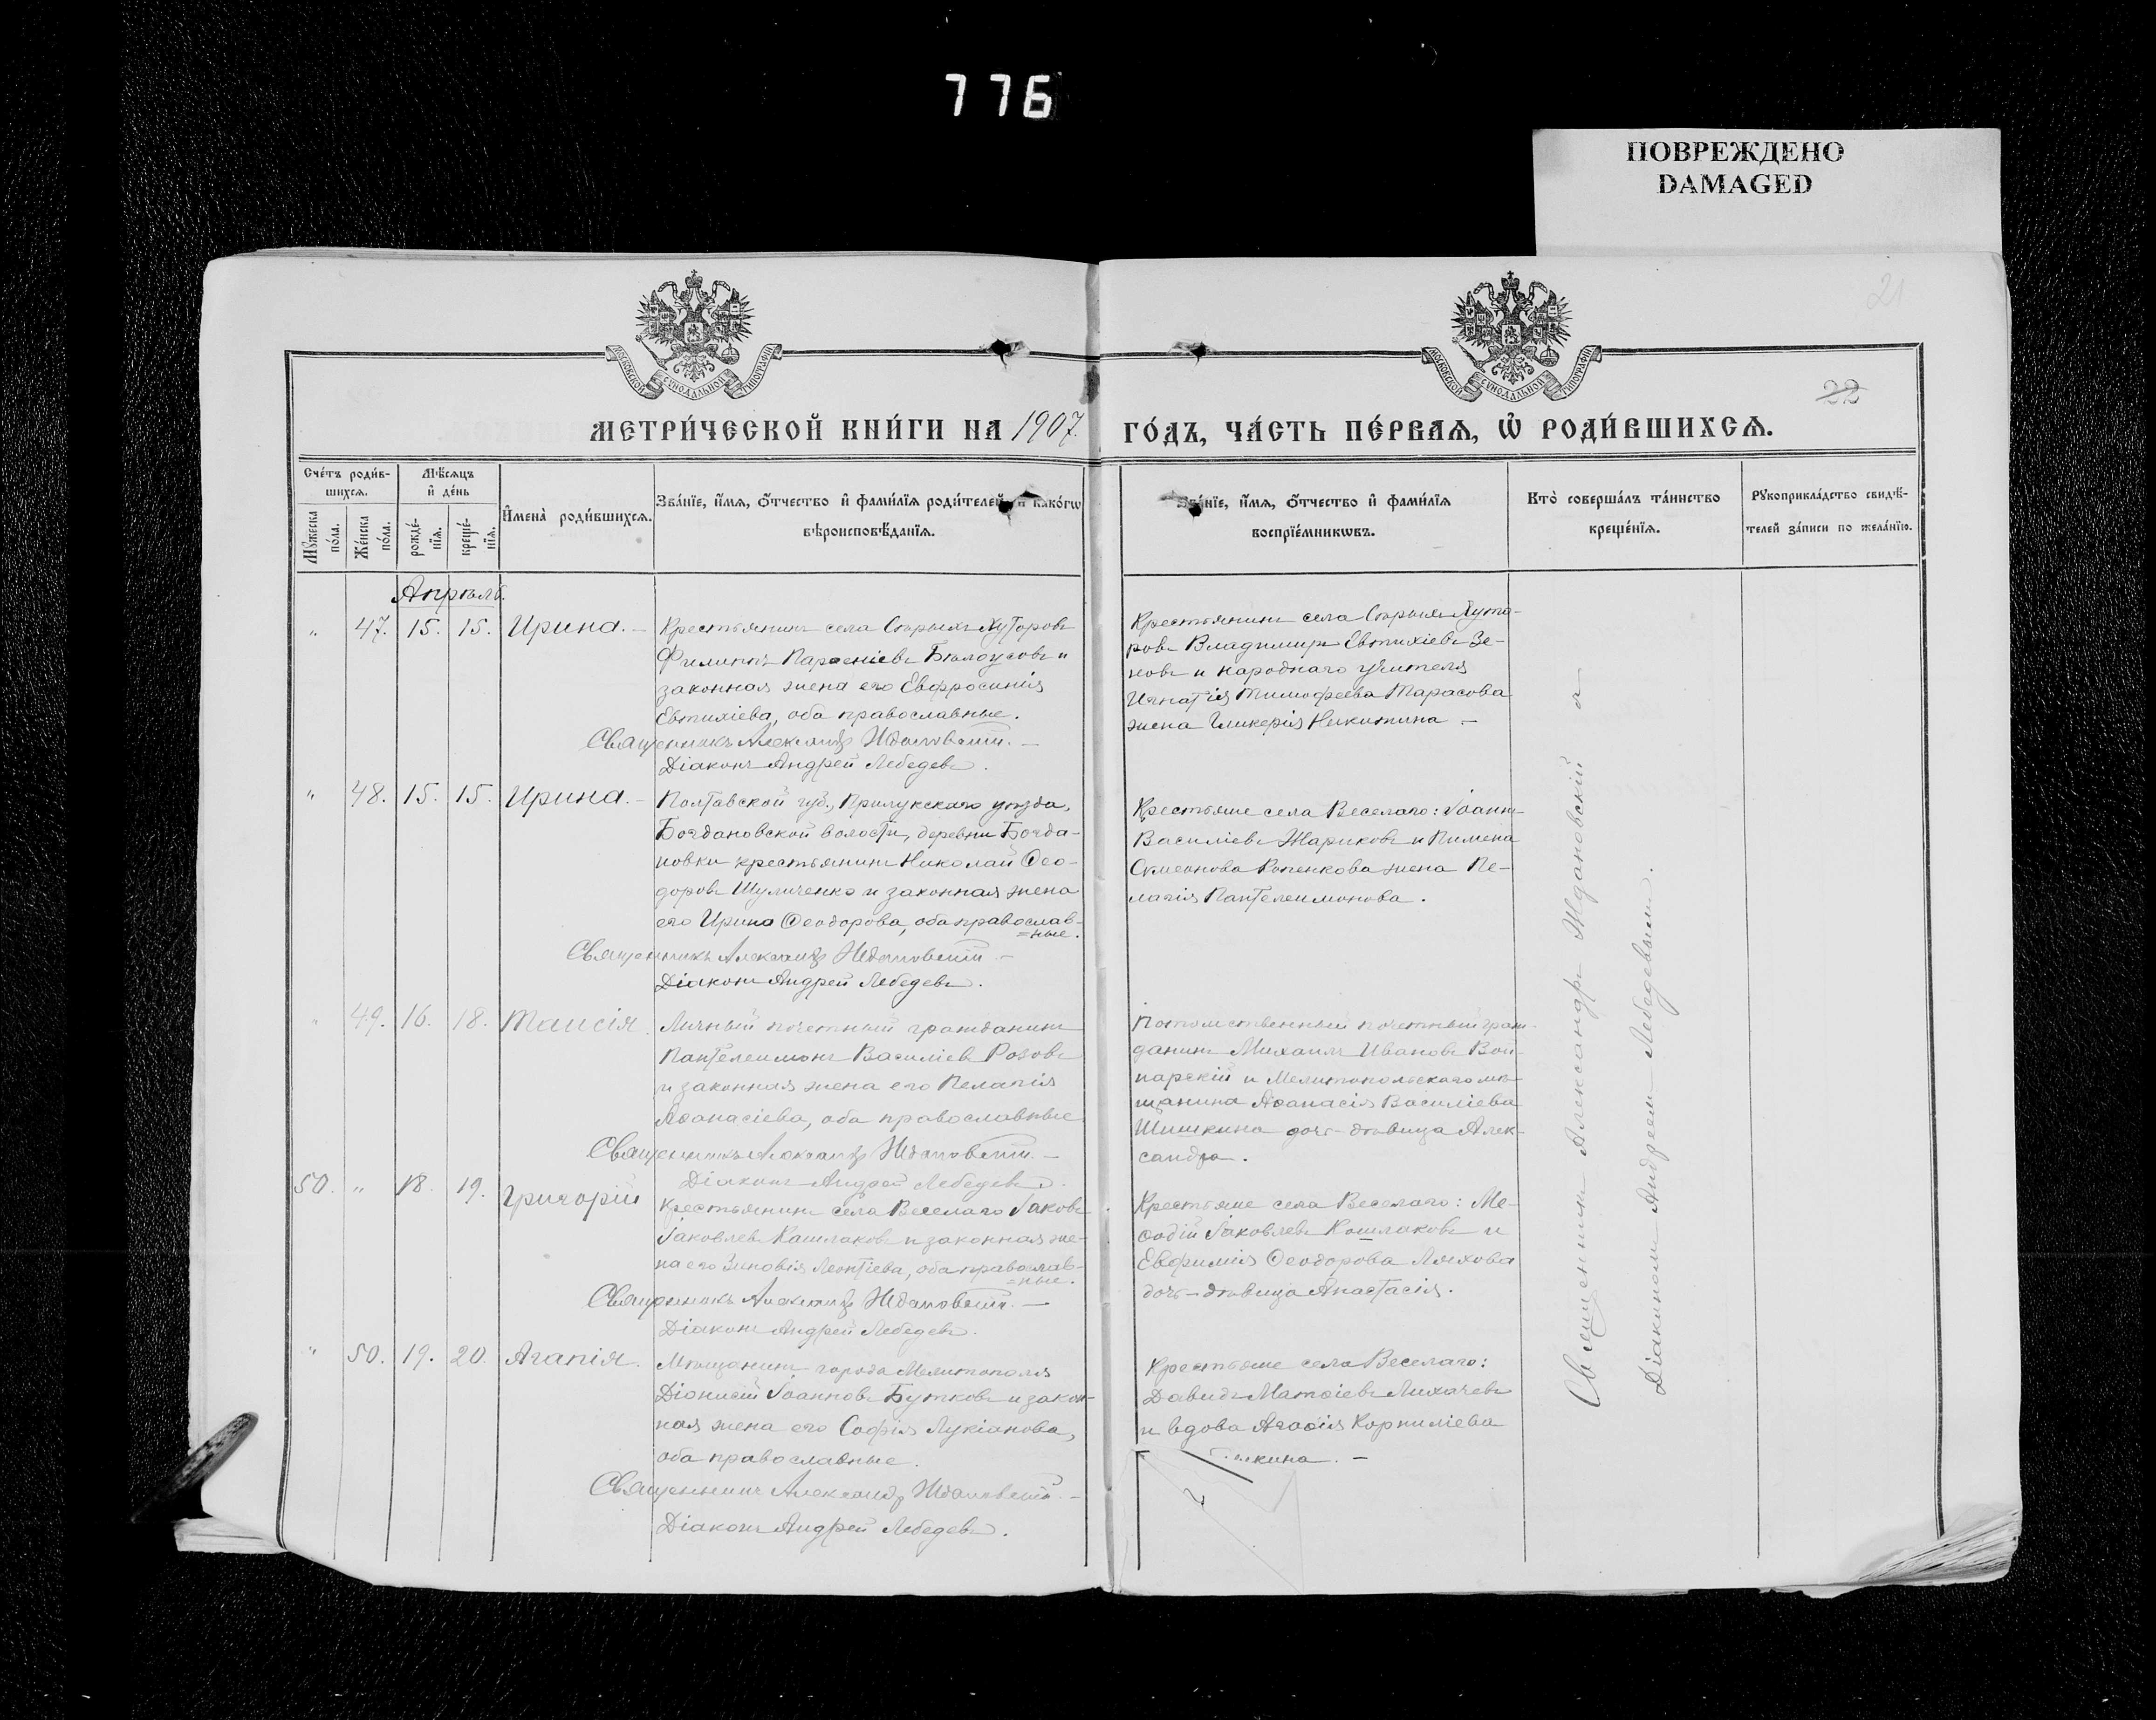 776
ПОВРЕЖДЕНО
DAMAGED
21
22
МОСКОВСКОЙ СѴНОДАЛЬНОЙ ТИПОГРАФІИ
МОСКОВСКОЙ СѴНОДАЛЬНОЙ ТИПОГРАФІИ
МЕТРИ́ЧЕСКОЙ КНИ́ГИ НА 1907.
ГО́ДЪ, ЧА́СТЬ ПЕ́РВАѦ, Ѡ҆ РОДИ́ВШИХСѦ.
Сче́тъ роди́в-
шихсѧ.
Мꙋ́жеска
по́ла.
Же́нска
по́ла.
Мѣ́сѧцъ
и҆ де́нь
рожде́-
нїѧ.
креще́-
нїѧ.
И҆мена̀ роди́вшихсѧ.
Зва́нїе, и҆́мѧ, ѻ҆́тчество и҆ фами́лїѧ роди́телей, и҆ како́гѡ
вѣроисповѣ́данїѧ.
Зва́нїе, и҆́мѧ, ѻ҆́тчество и҆ фами́лїѧ
воспрїе́мникѡвъ.
Кто̀ соверша́лъ та́инство
креще́нїѧ.
Рꙋкоприкла́дство свидѣ́-
телей за́писи по жела́нїю.
Апрѣль.
" 47. 15. 15. Ирина. —
Крестьянинъ села Старыхъ Хуторовъ
Филиппъ Парѳеніевъ Бѣлоусовъ и
законная жена его Евфросинія
Евтихіева, оба православные.
Священникъ Александръ Ждановскій. —
Діаконъ Андрей Лебедевъ.
Крестьянинъ села Старыхъ Хуто-
ровъ Владимиръ Евтихіевъ Зе-
новъ и народнаго учителя
Игнатія Тимофеева Тарасова
жена Гликерія Никитина —
" 48. 15. 15. Ирина. —
Полтавской губ., Прилукскаго уѣзда,
Богдановской волости, деревни Богда-
новки крестьянинъ Николай Ѳео-
доровъ Шуличенко и законная жена
его Ирина Ѳеодорова, оба православ-
=ные.
Священникъ Александръ Ждановскій —
Діаконъ Андрей Лебедевъ.
Крестьяне села Веселаго: Іоаннъ
Василіевъ Жариковъ и Пимена
Симеонова Копенкова жена Пе-
лагія Пантелеимонова.
" 49. 16. 18. Таисія.
Личный почетный гражданинъ
Пантелеимонъ Василіевъ Розовъ
и законная жена его Пелагія
Аѳанасіева, оба православные
Священникъ Александръ Ждановскій. —
Діаконъ Андрей Лебедевъ.
Потомственный почетный граж-
данинъ Михаилъ Ивановъ Вой-
нарскій и Мелитопольскаго мѣ-
щанина Аѳанасія Василіева
Шишкина дочь-дѣвица Алек-
сандра.
50. " 18. 19. Григорій
Крестьянинъ села Веселаго Іаковъ
Іаковлевъ Кашлаковъ и законная же-
на его Зиновія Леонтіева, оба православ-
=ные.
Священникъ Александръ Ждановскій. —
Діаконъ Андрей Лебедевъ.
Крестьяне села Веселаго: Ме-
ѳодій Іаковлевъ Кошлаковъ и
Евфимія Ѳеодорова Ляхова
дочь-дѣвица Анастасія.
" 50. 19. 20. Агапія.
Мѣщанинъ города Мелитополя
Діонисій Іоанновъ Бутковъ и закон-
ная жена его Софія Лукіанова,
оба православные.
Священникъ Александръ Ждановскій. —
Діаконъ Андрей Лебедевъ.
Крестьяне села Веселаго:
Давидъ Матѳіевъ Лихачевъ
и вдова Агаѳія Корниліева
Священникъ Александръ Ждановскій съ
Діакономъ Андреемъ Лебедевымъ.